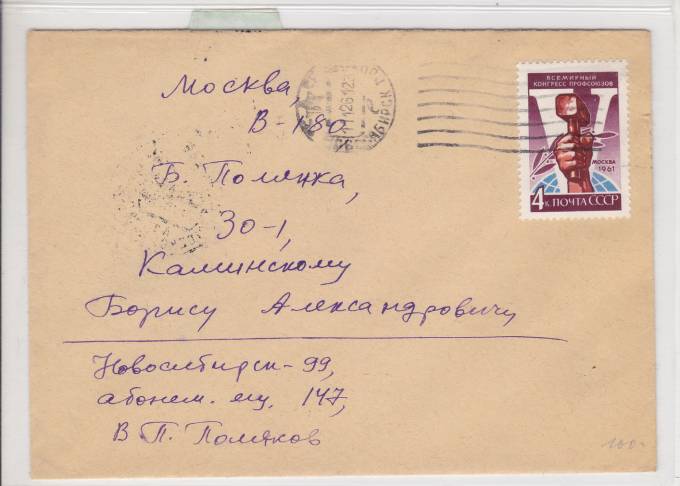 Москва,
В-180
Б. Полянка,
30-1,
Каминскому
Борису Александровичу
Новосибирск-99,
абонем. ящ. 147,
В П. Поляков
ВСЕМИРНЫЙ
КОНГРЕСС ПРОФСОЮЗОВ
V
МОСКВА
1961
4К. ПОЧТА СССР